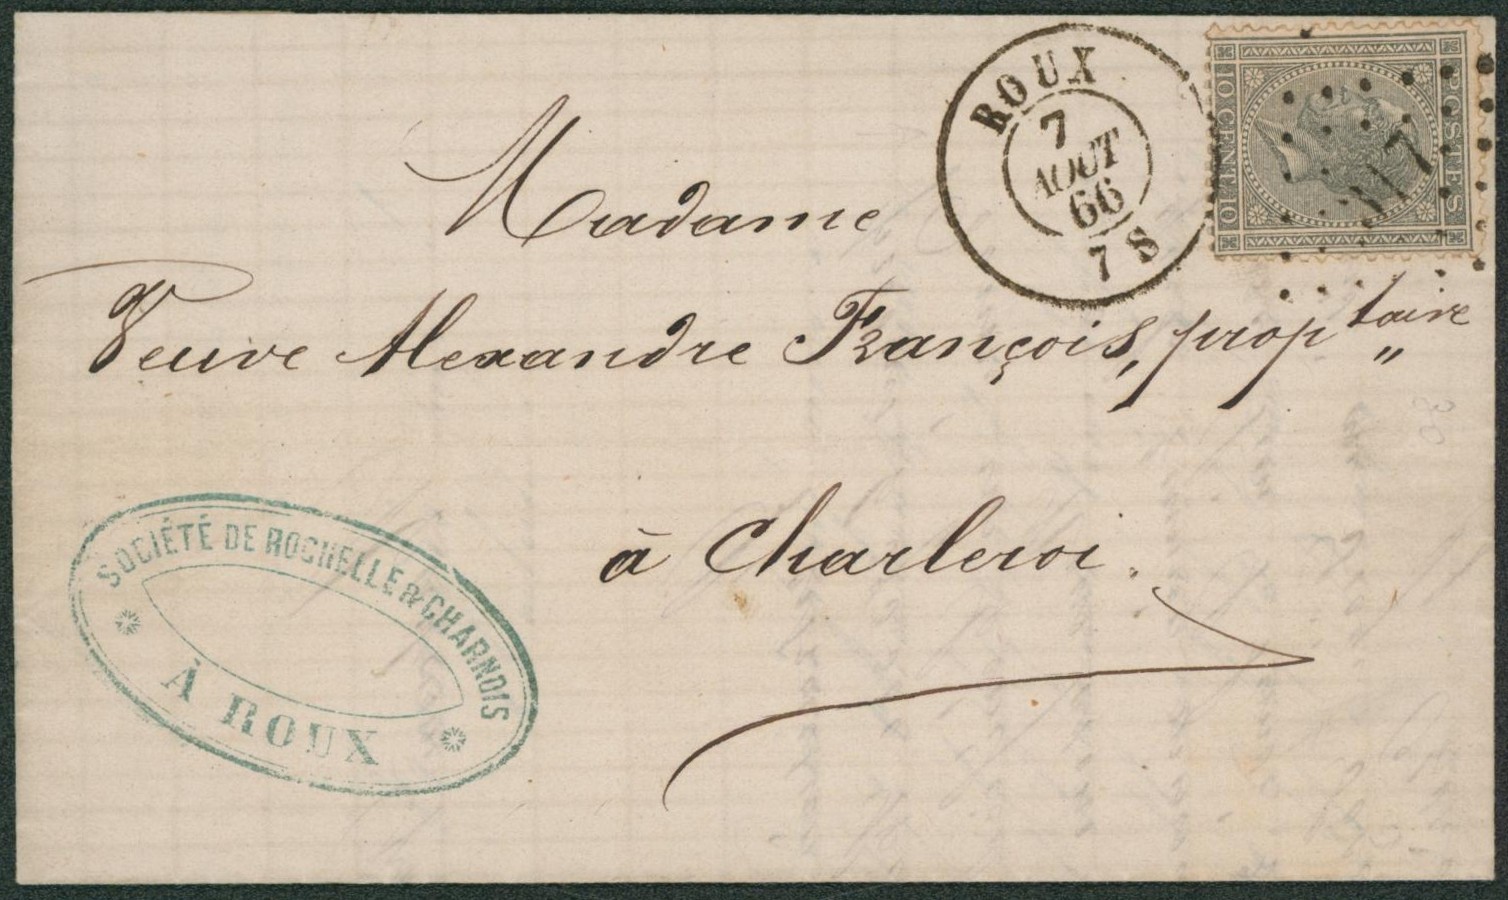 ROUX
7
AOUT
66
7 S
POSTES
10 CENT. 10
Madame
Veuve Alexandre François, prop taire
"
à Charleroi.
SOCIÉTÉ DE ROCHELLE & CHARNOIS
À ROUX
30